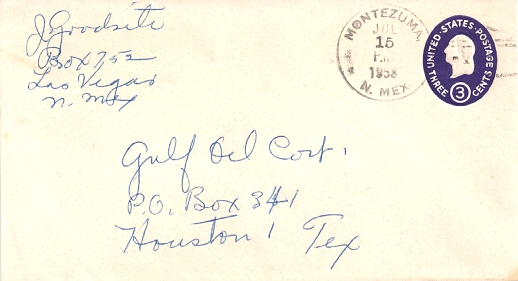 J Goodsite
Box 752
Las Vegas
N. Mex
MONTEZUMA,
JUL
15
P.M.
1958
N. MEX.
UNITED·STATES·POSTAGE
THREE 3 CENTS
Gulf Oil Corp.
P.O. Box 341
Houston 1 Tex